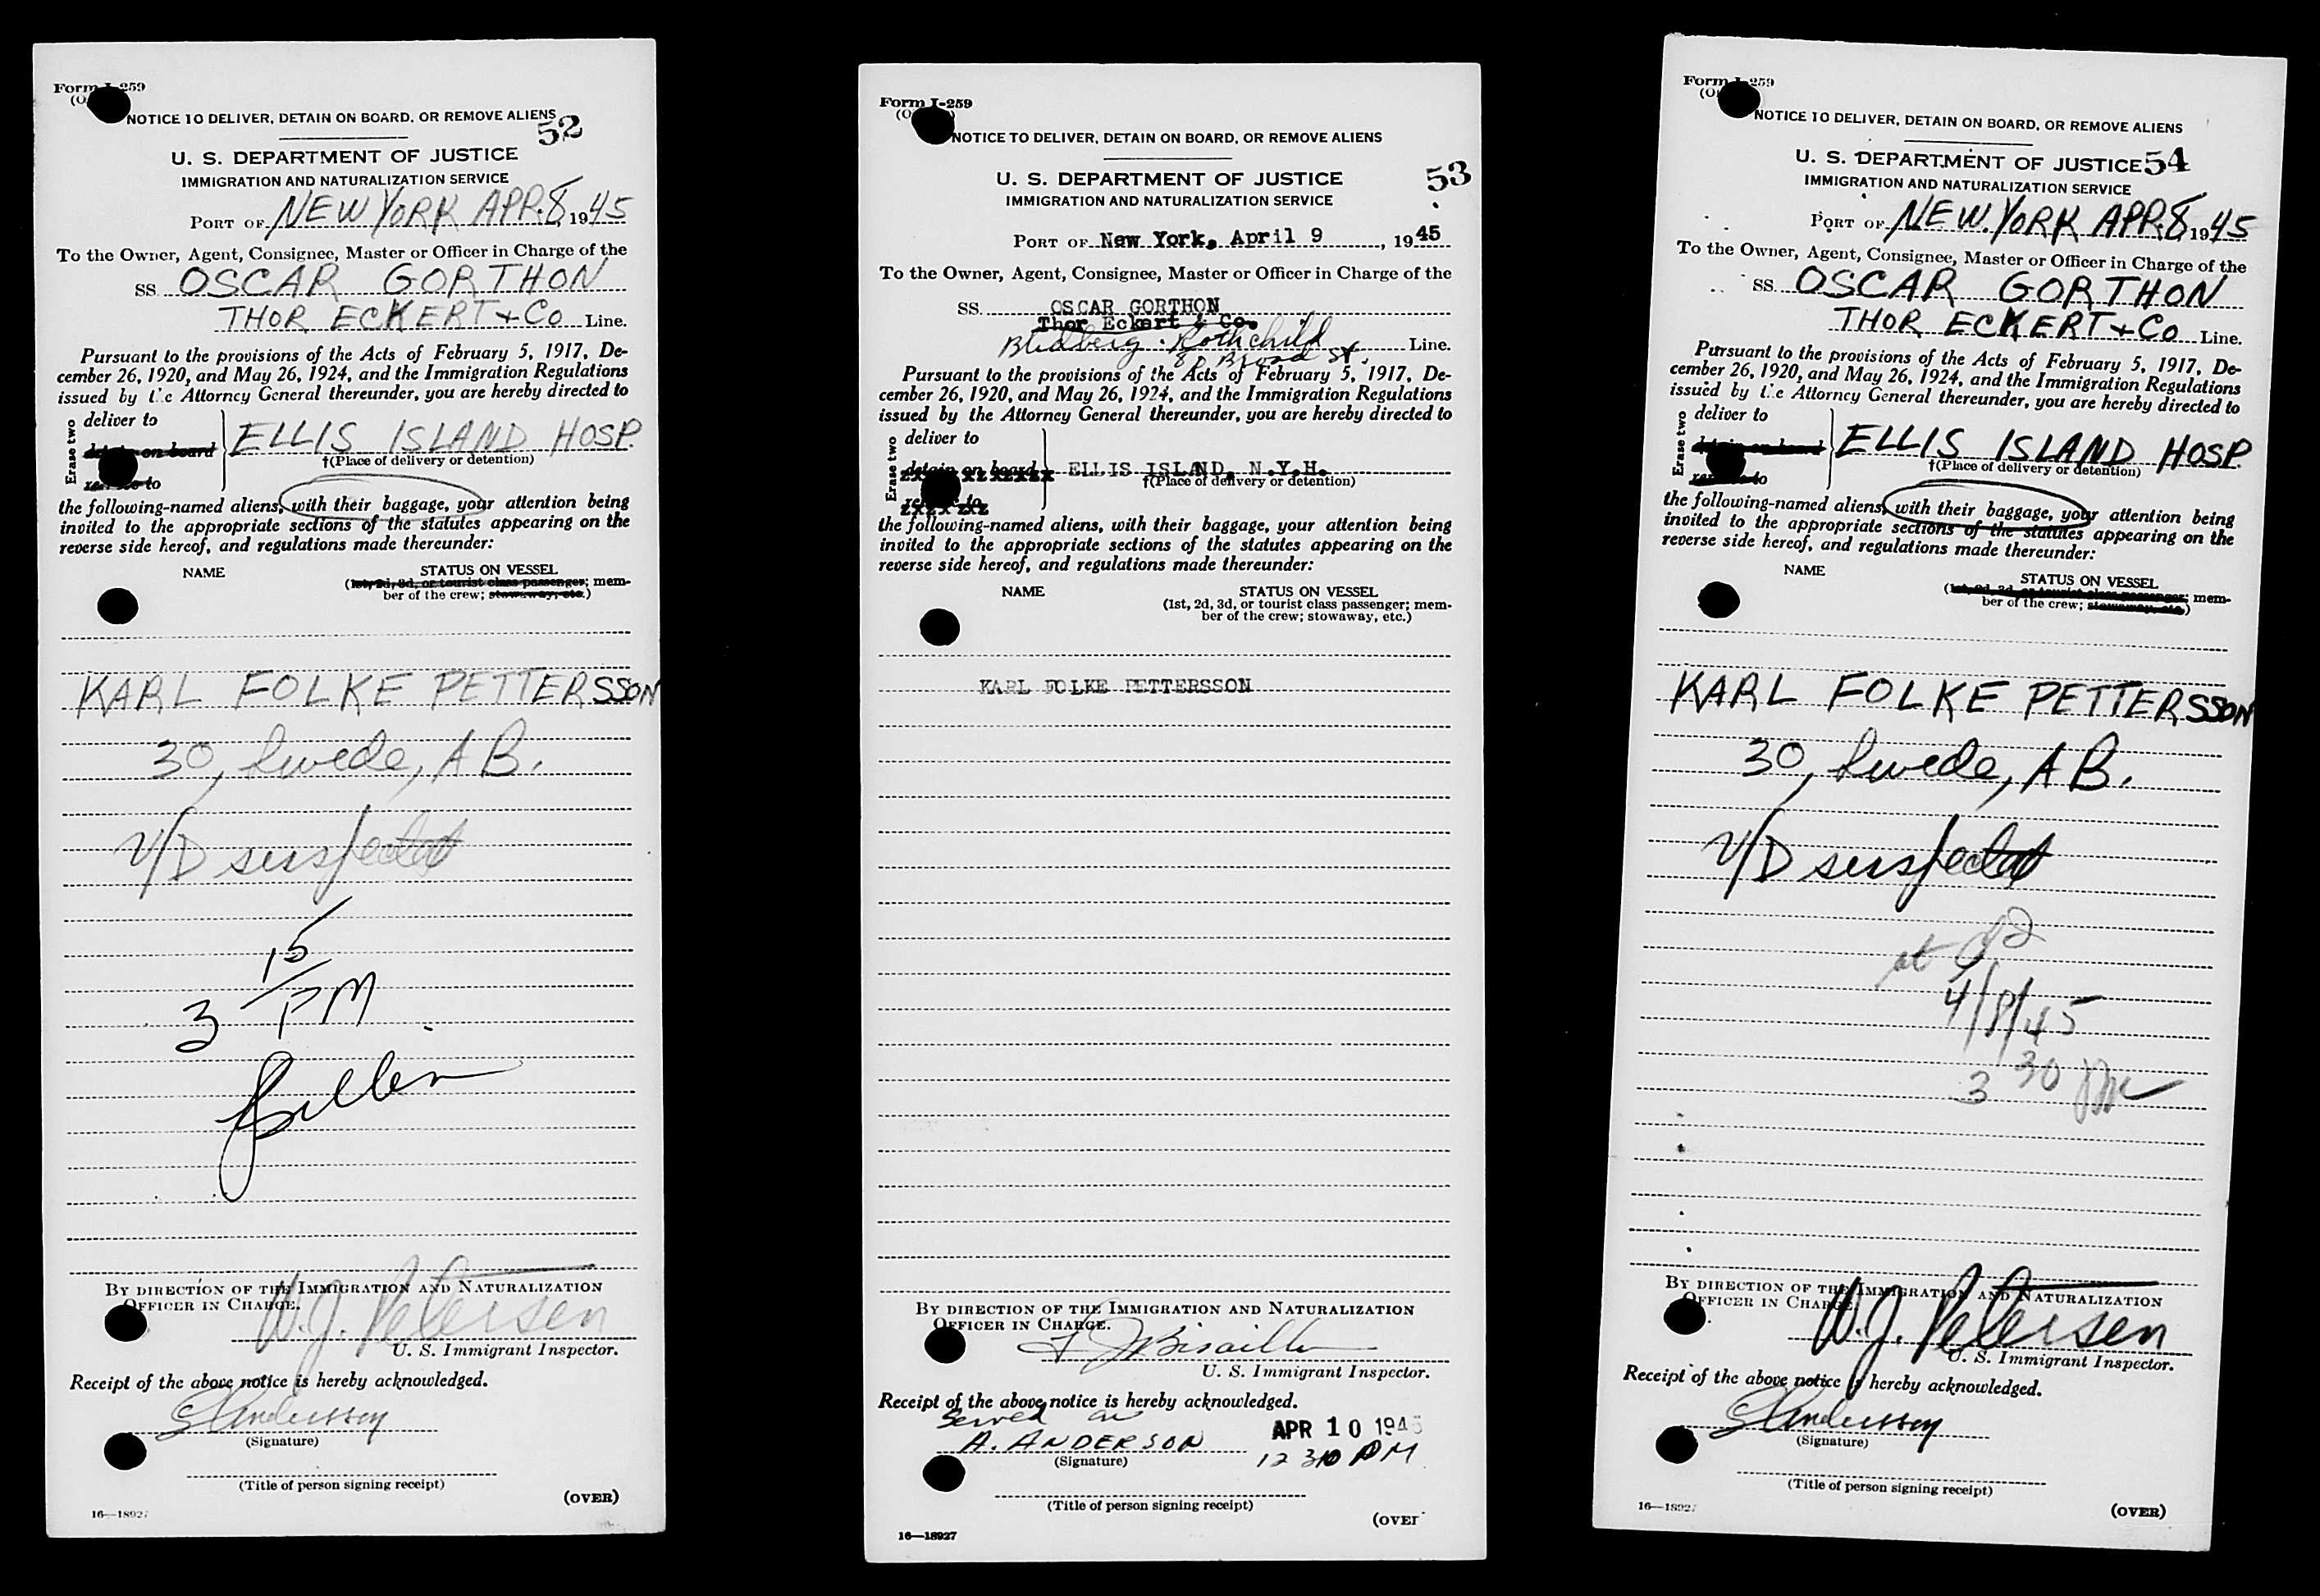 Form I-259
(O
NOTICE TO DELIVER, DETAIN ON BOARD, OR REMOVE ALIENS
52
U. S. DEPARTMENT OF JUSTICE
IMMIGRATION AND NATURALIZATION SERVICE
PORT OF NEW YORK APR. 8, 1945
To the Owner, Agent, Consignee, Master or Officer in Charge of the
SS OSCAR GORTHON
THOR ECKERT + Co Line.
Pursuant to the provisions of the Acts of February 5, 1917, De-
cember 26, 1920, and May 26, 1924, and the Immigration Regulations
issued by the Attorney General thereunder, you are hereby directed to
Erase two
deliver to
detain on board
ELLIS ISLAND HOSP.
†(Place of delivery or detention)
remove to
the following-named aliens, with their baggage, your attention being
invited to the appropriate sections of the statutes appearing on the
reverse side hereof, and regulations made thereunder:
NAME STATUS ON VESSEL
(1st, 2d, 3d, or tourist class passenger; mem-
ber of the crew; stowaway, etc.)
KARL FOLKE PETTERSSON
30, Swede, A B.
V/D suspected
3 15 PM
BY DIRECTION OF THE IMMIGRATION AND NATURALIZATION
OFFICER IN CHARGE.
W. J. Petersen
U. S. Immigrant Inspector.
Receipt of the above notice is hereby acknowledged.
(Signature)
(Title of person signing receipt)
(OVER)
16—18927
Form I-259
(O )
NOTICE TO DELIVER, DETAIN ON BOARD, OR REMOVE ALIENS
53
U. S. DEPARTMENT OF JUSTICE
IMMIGRATION AND NATURALIZATION SERVICE
PORT OF New York, April 9, 1945
To the Owner, Agent, Consignee, Master or Officer in Charge of the
SS. OSCAR GORTHON
Thor Eckert & Co.
Blidberg Rothchild Line.
80 Broad St.
Pursuant to the provisions of the Acts of February 5, 1917, De-
cember 26, 1920, and May 26, 1924, and the Immigration Regulations
issued by the Attorney General thereunder, you are hereby directed to
Erase two
deliver to
detain on board
ELLIS ISLAND, N.Y.H.
†(Place of delivery or detention)
remove to
the following-named aliens, with their baggage, your attention being
invited to the appropriate sections of the statutes appearing on the
reverse side hereof, and regulations made thereunder:
NAME STATUS ON VESSEL
(1st, 2d, 3d, or tourist class passenger; mem-
ber of the crew; stowaway, etc.)
KARL FOLKE PETTERSSON
BY DIRECTION OF THE IMMIGRATION AND NATURALIZATION
OFFICER IN CHARGE.
U. S. Immigrant Inspector.
Receipt of the above notice is hereby acknowledged.
Served on
A. ANDERSON APR 10 1945
(Signature) 12 30 PM
(Title of person signing receipt)
(OVER
16—18927
Form I-259
(O
NOTICE TO DELIVER, DETAIN ON BOARD, OR REMOVE ALIENS
U. S. DEPARTMENT OF JUSTICE 54
IMMIGRATION AND NATURALIZATION SERVICE
PORT OF NEW YORK APR. 8 1945
To the Owner, Agent, Consignee, Master or Officer in Charge of the
SS. OSCAR GORTHON
THOR ECKERT + Co Line.
Pursuant to the provisions of the Acts of February 5, 1917, De-
cember 26, 1920, and May 26, 1924, and the Immigration Regulations
issued by the Attorney General thereunder, you are hereby directed to
Erase two
deliver to
detain on board
ELLIS ISLAND HOSP.
†(Place of delivery or detention)
remove to
the following-named aliens, with their baggage, your attention being
invited to the appropriate sections of the statutes appearing on the
reverse side hereof, and regulations made thereunder:
NAME STATUS ON VESSEL
(1st, 2d, 3d, or tourist class passenger; mem-
ber of the crew; stowaway, etc.)
KARL FOLKE PETTERSSON
30, Swede, A B.
V/D suspected
at
4/8/45
3 30 PM
BY DIRECTION OF THE IMMIGRATION AND NATURALIZATION
OFFICER IN CHARGE.
W. J. Petersen
U. S. Immigrant Inspector.
Receipt of the above notice is hereby acknowledged.
(Signature)
(Title of person signing receipt)
(OVER)
16—18927